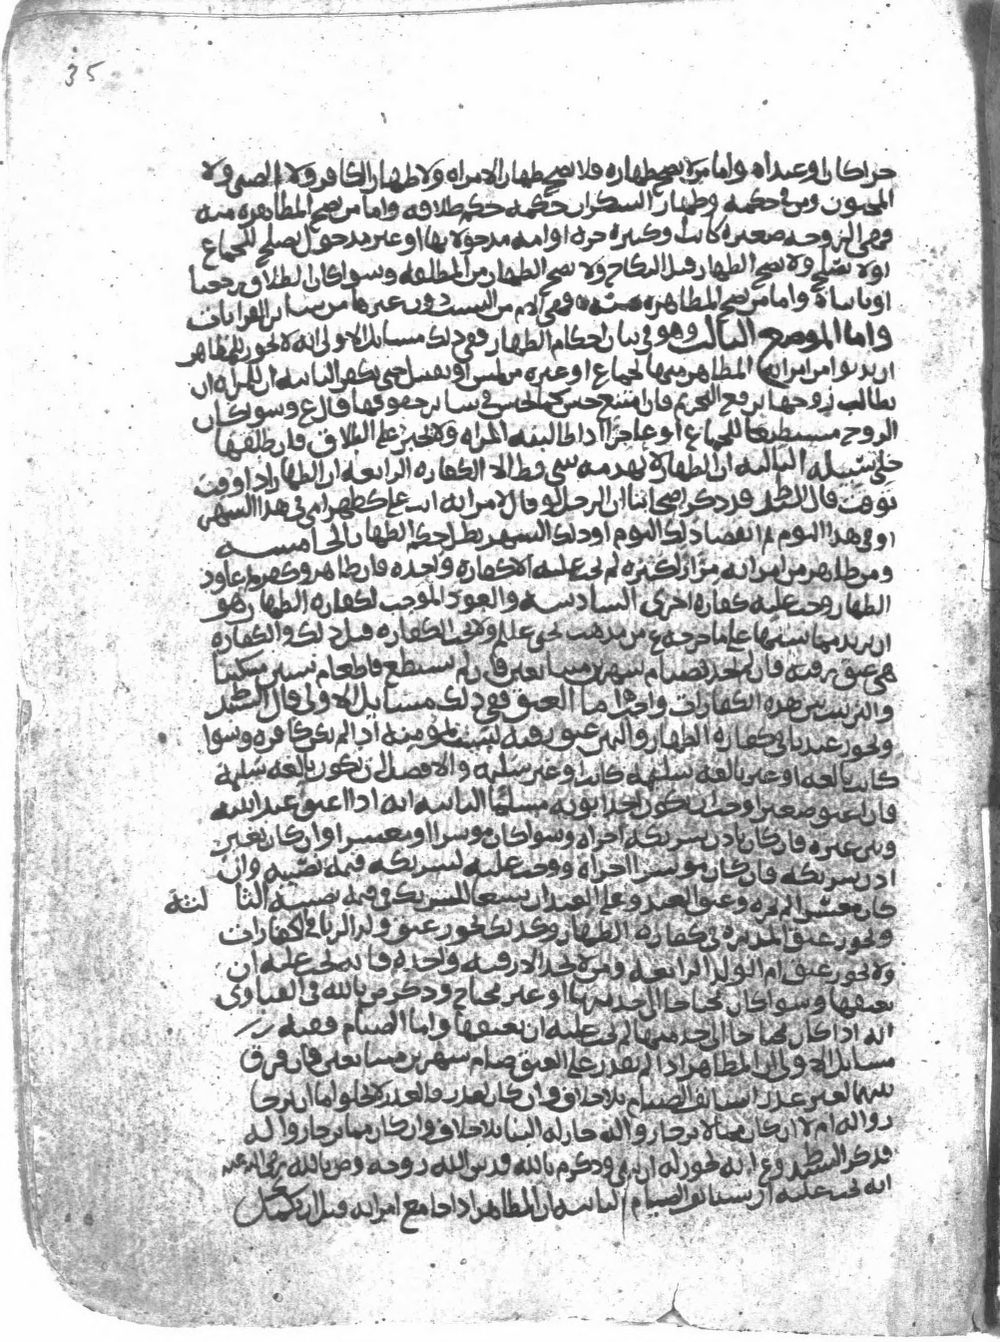 35
حرا كان او عبدا ه واما من لا يصح ظهاره فلا يصح ظهار الامراه ولا ظهار الكافر ولا الصبى ولا
المجنون ومن فى حكمه وظهار السكران حكمه حكم طلاقه واما من يصح المظاهره منه
فهى الزوجه صغيره كانت او كبيره حره او امه مدخولا بها او غير مدخول تصلح للجماع
اولا تصلح ولا يصح الظهار قبل النكاح ولا يصح الظهار من المطلقه وسوا كان الطلاق رجعيا
او باينا ه واما من يصح المظاهره به فهى الام من النسب دون غيرها من ساير القرابات
واما الموضع الثالث وهو فى بيان احكام الظهار ففى ذلك مسايل الاولى انه لا يجوز للمظاهر
ان يدنوا من امراته المظاهر منها لجماع او غيره من لمس او تقبيل حتى يكفر الثانيه ان للمراه ان
تطالب زوجها برفع التحريم فان امتنع حبس كما يحبس فى ساير حقوقها قال ع وسوا كان
الزوج مستطيعا للجماع او عاجزا اذا طالبته المراه ولا يجبر على الطلاق فان طلقها
خلى سبيله الثالثه ان الظهار لا يهدمه شى قط الا الكفاره الرابعه ان الظهار اذا وقت
توقت قال السيد قد ذكر اصحابنا ان الرجل لو قال لامراته انت على كظهر امى فى هذا الشهر
او فى هذا اليوم ثم انقضا ذلك اليوم او ذلك الشهر بطل حكم الظهار الخامسه
ومن ظاهر من امراته مرارا كثيره لم يجب عليه الا كفاره واحده فان ظاهر وكفر ثم عاود
الظهار وجب عليه كفاره اخرى السادسه والعود الموجب لكفاره الظهار هو
ان يريد مماستها على ما خرجه ع من مذهب يحيى علم ولا تجب الكفاره قبل ذلك والكفاره
هى عتق رقبه فان لم يجد فصيام شهرين متتابعين فان لم يستطع فاطعام ستين مسكينا
والترتيب بين هذه الكفارات واجب اما العتق ففى ذلك مسايل الاولى قال السيد
ويجوز عندنا فى كفاره الظهار واليمين عتق رقبه ليست بمومنه اذا لم تكن كافره وسوا
كانت بالغه او غير بالغه سليمه كانت او غير سليمه والافضل ان تكون بالغه سليمه
فان اعتق صغيرا وجب ان يكون احد ابويه مسلما الثانيه انه اذا اعتق عبدا بينه
وبين غيره فان كان باذن شريكه اجزاه وسوا كان موسرا او معسرا وان كان بغير
اذن شريكه فان كان موسرا اجزاه ووجب عليه لشريكه قيمه نصيبه وان
كان معسرا لم يجزه وعتق العبد وعلى العبد ان يسعا للشريك فى قيمه نصيبه الثا لثة
ويجوز عتق المدبره فى كفاره الظهار وكذلك يجوز عتق ولد الزنا فى الكفارات
ولا يجوز عتق ام الولد الرابعه ومن لا يجد الا رقبه واحده فانه يجب عليه ان
يعتقها وسوا كان محتاجا الى خدمتها او غير محتاج وذكر ص بالله فى الفتاوى
انه اذا كان محتاجا الى خدمتها لم يجب عليه ان يعتقها واما الصيام ففيه
مسايل الاولى ان المظاهر اذا لم يقدر على العتق صام شهرين متتابعين فان فرق
بينهما لغير عذر استانف الصيام بلا خلاف وان كان لعذر فالعذر لا يخلوا اما ان يرجا
زواله ام لا ان كان مما لا يرجا زواله جاز له البنا بلا خلاف وان كان مما يرجا زواله
فذكر السيد وع انه يجوز له ان يبنى وذكر م بالله قدس الله روحه وص بالله رضى الله عنه
انه يجب عليه ان يستانف الصيام الثانيه ان المظاهر اذا جامع امراته قبل ان تكمل